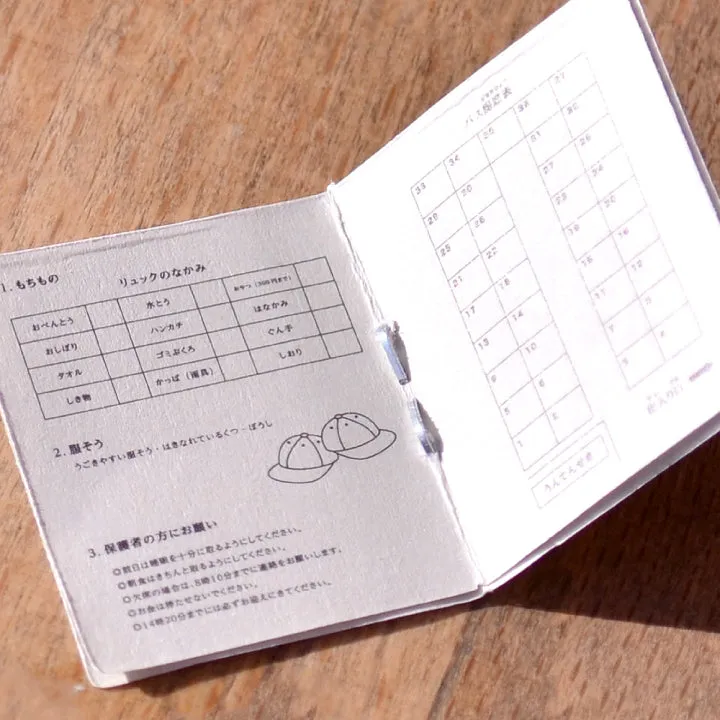 1. もちもの　リュックのなかみ
おべんとう　水とう　おやつ（300円まで）
おしぼり　ハンカチ　はなかみ
タオル　ゴミぶくろ　ぐん手
しき物　かっぱ（雨具）　しおり
2. 服そう
うごきやすい服そう・はきなれているくつ・ぼうし
3. 保護者の方にお願い
◎前日は睡眠を十分に取るようにしてください。
◎朝食はきちんと取るようにしてください。
◎欠席の場合は、8時10分までに連絡をお願いします。
◎お金は持たせないでください。
◎14時20分までには必ずお迎えにきてください。
バス座席表
33 34 35 36 37
29 30 31
25 26 27
21 22
17 18
13 14
9 10
5 6
1 2
うんてんせき